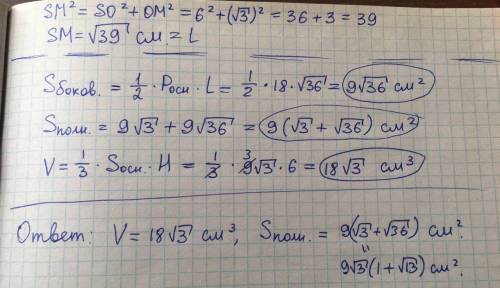 SM² = SO² + OM² = 6² + (√3)² = 36 + 3 = 39
SM = √39 см. = L
Sбоков. = 1/2 · Pосн · L = 1/2 · 18 · √36 = 9√36 см²
Sполн. = 9√3 + 9√36 = 9(√3 + √36) см²
V = 1/3 · Sосн · H = 1/3 · 9√3 · 6 = 18√3 см³
Ответ: V = 18√3 см³, Sполн. = 9(√3 + √36) см².
=
9√3(1 + √13) см².